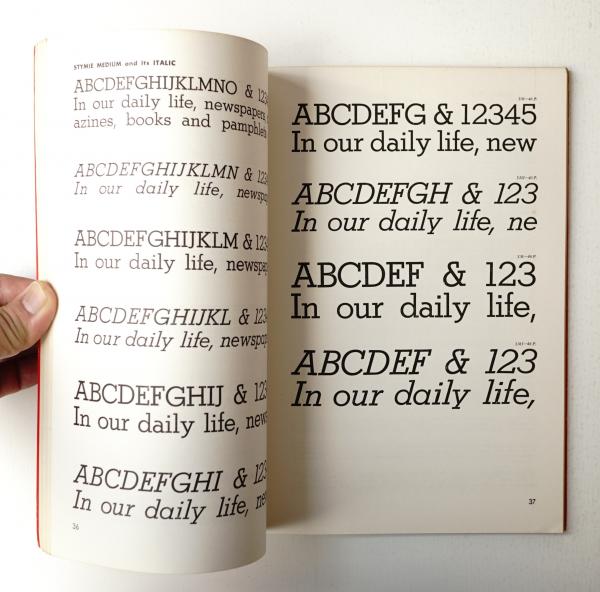 STYMIE MEDIUM and its ITALIC
ABCDEFGHIJKLMNO & 123
In our daily life, newspapers
azines, books and pamphlets
ABCDEFGHIJKLMN & 123
In our daily life, newspap
ABCDEFGHIJKLM & 123
In our daily life, newspap
ABCDEFGHIJKL & 123
In our daily life, newspap
ABCDEFGHIJ & 123
In our daily life, news
ABCDEFGHI & 123
In our daily life, ne
36
ABCDEFG & 12345
In our daily life, new
ABCDEFGH & 123
In our daily life, ne
ABCDEF & 123
In our daily life,
ABCDEF & 123
In our daily life,
37